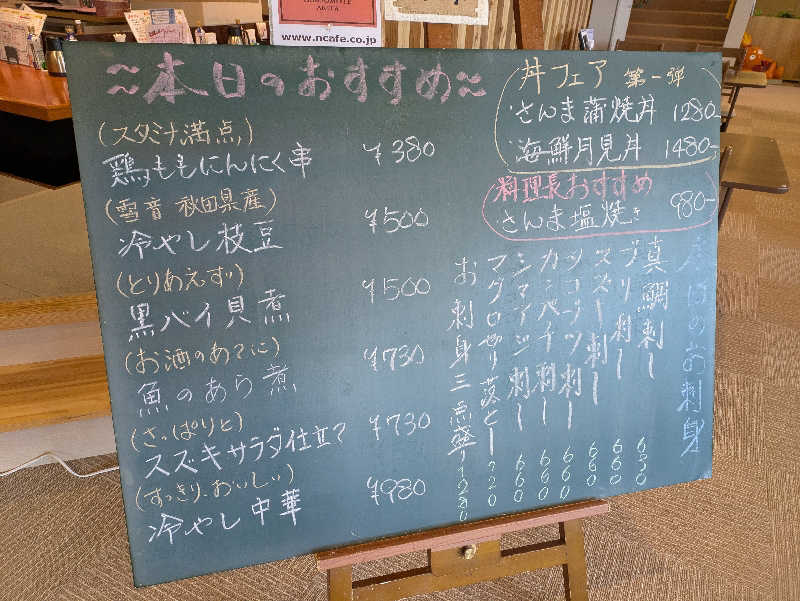 www.ncafe.co.jp
~本日のおすすめ~
(スタミナ満点)
鶏ももにんにく串 ¥380
(雪音 秋田県産)
冷やし枝豆 ¥500
(とりあえず)
黒バイ貝煮 ¥500
(お酒のあてに)
魚のあら煮 ¥730
(さっぱりと)
スズキサラダ仕立て ¥730
(すっきり、おいしい)
冷やし中華 ¥980
丼フェア 第一弾
さんま蒲焼丼 1280-
海鮮月見丼 1480-
料理長おすすめ
さんま塩焼き 980-
のお刺身
真鯛刺し 690
ブリ刺し 660
スズキ刺し 660
ツブ刺し 660
カンパチ刺し 660
シマアジ刺し 660
マグロ切り落とし 720
お刺身三点盛り 1080